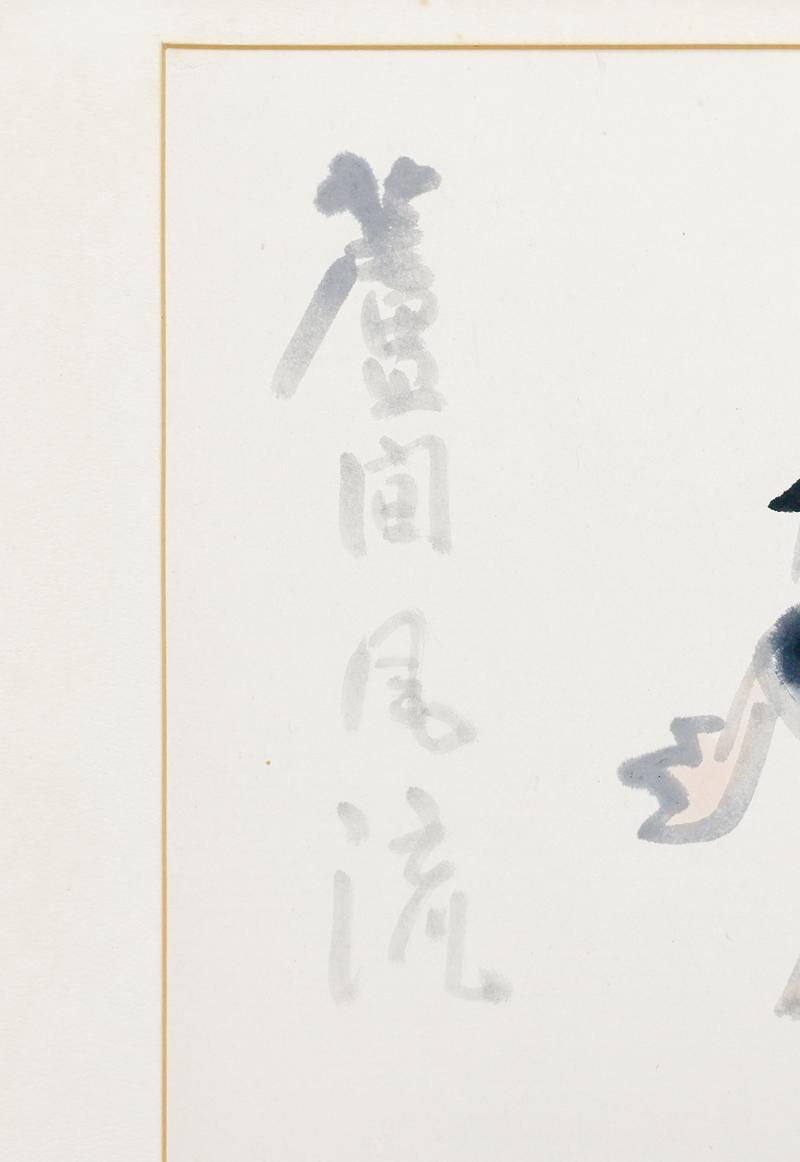 蘆間風流